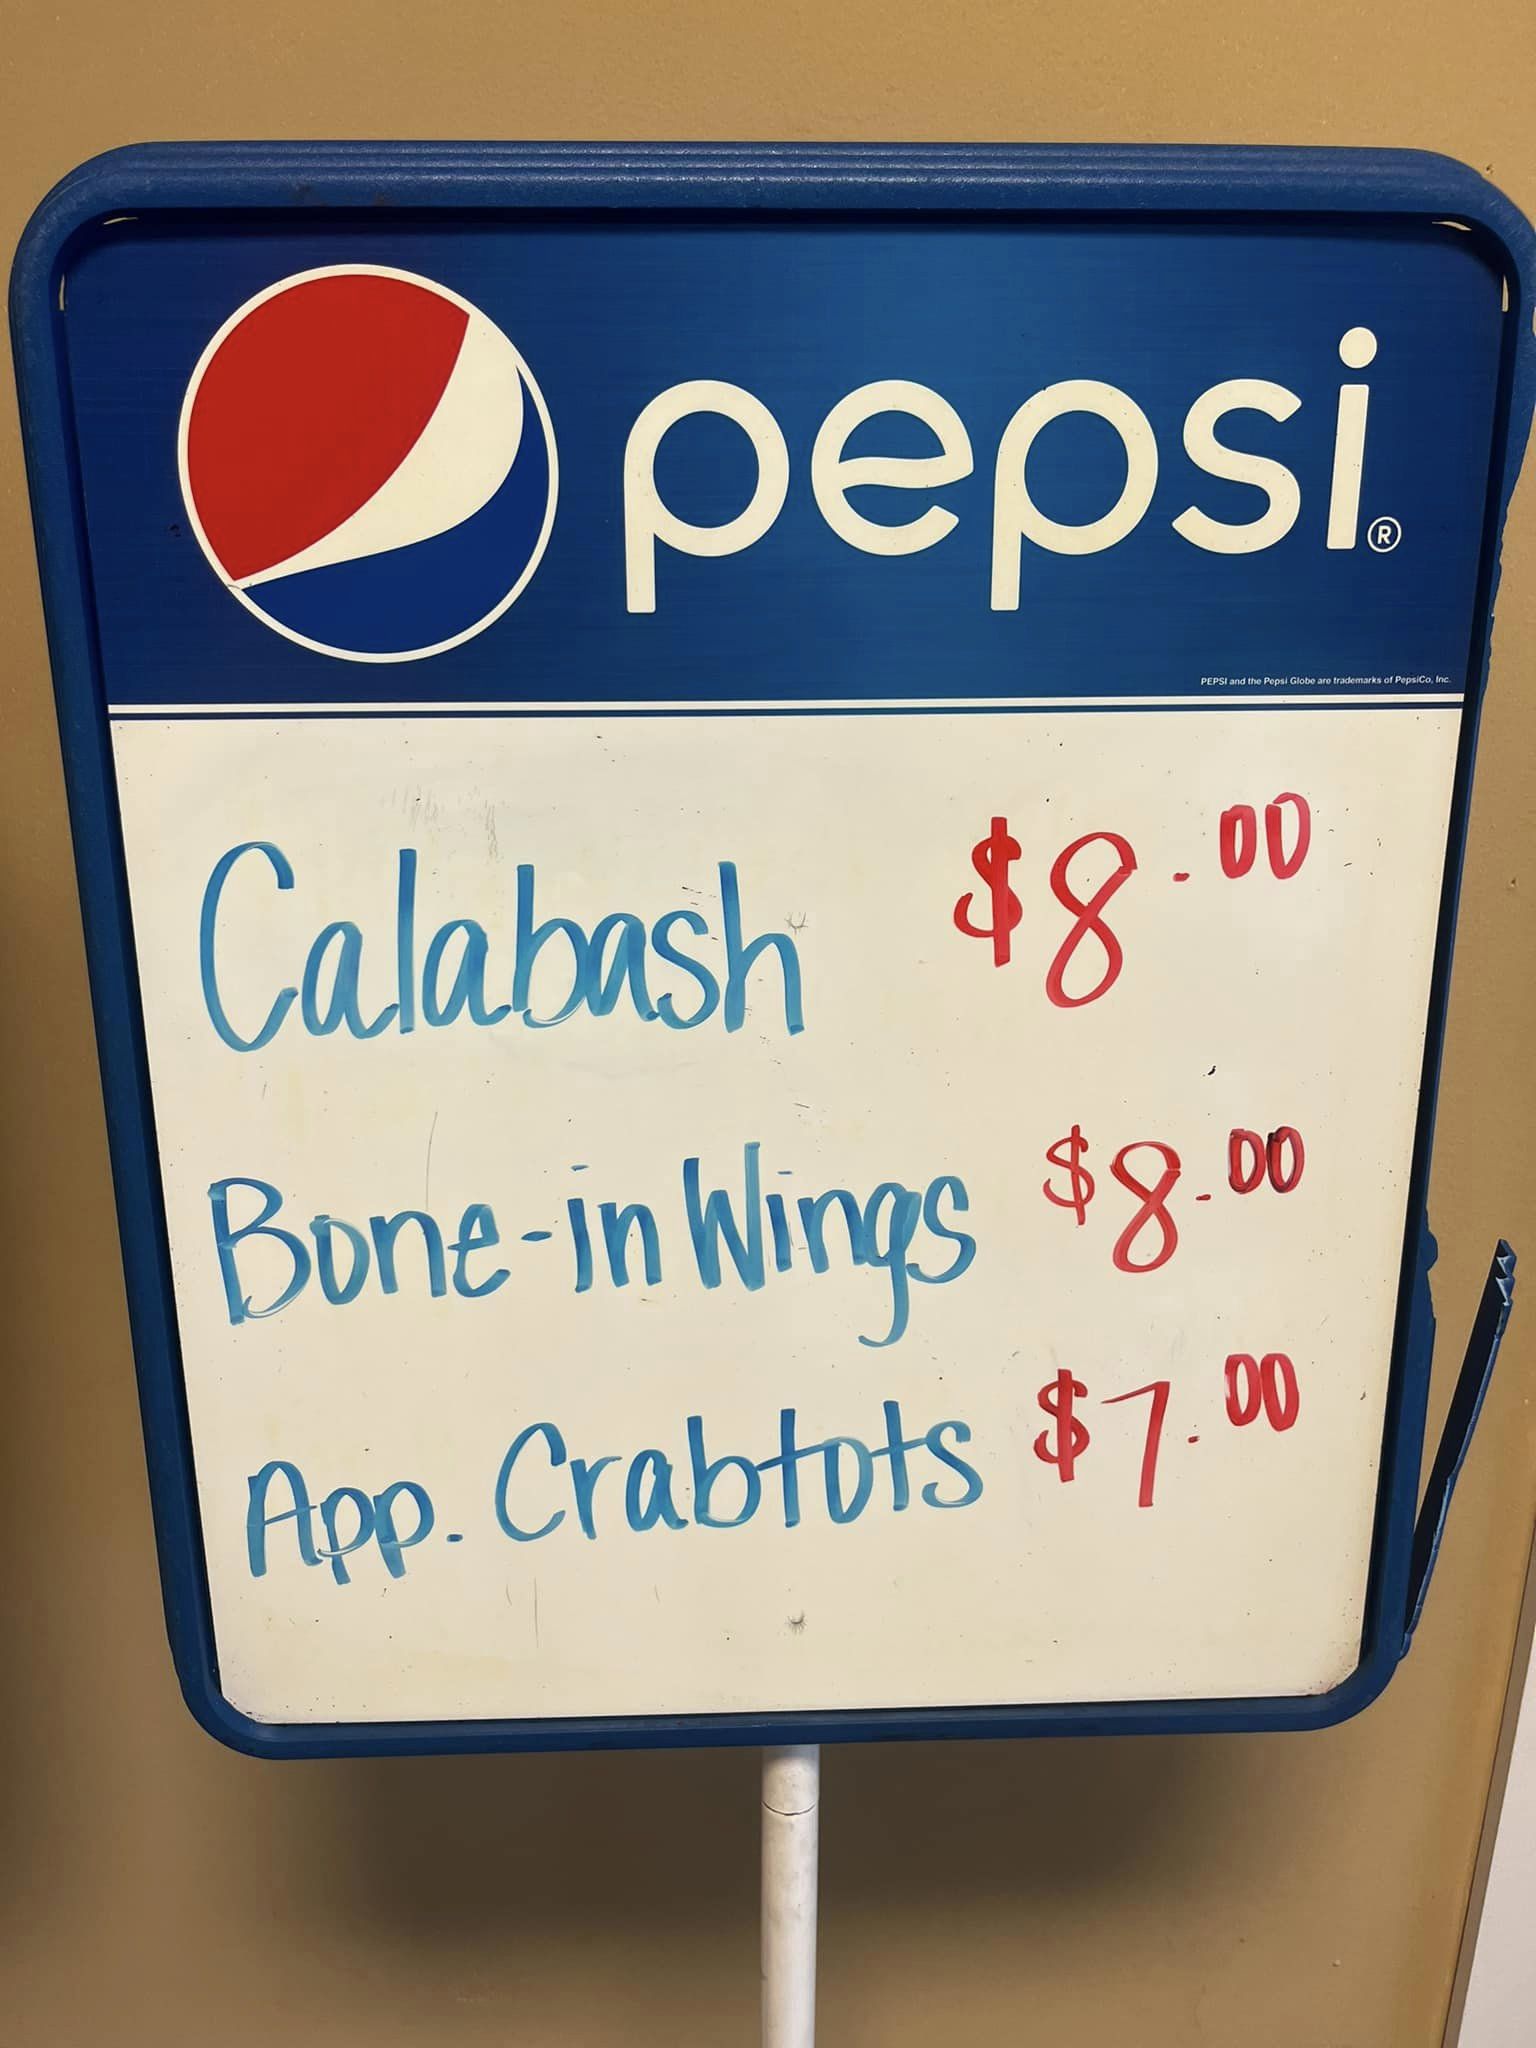 pepsi®
PEPSI and the Pepsi Globe are trademarks of PepsiCo, Inc.
Calabash $8.00
Bone-in Wings $8.00
App. Crabtots $7.00